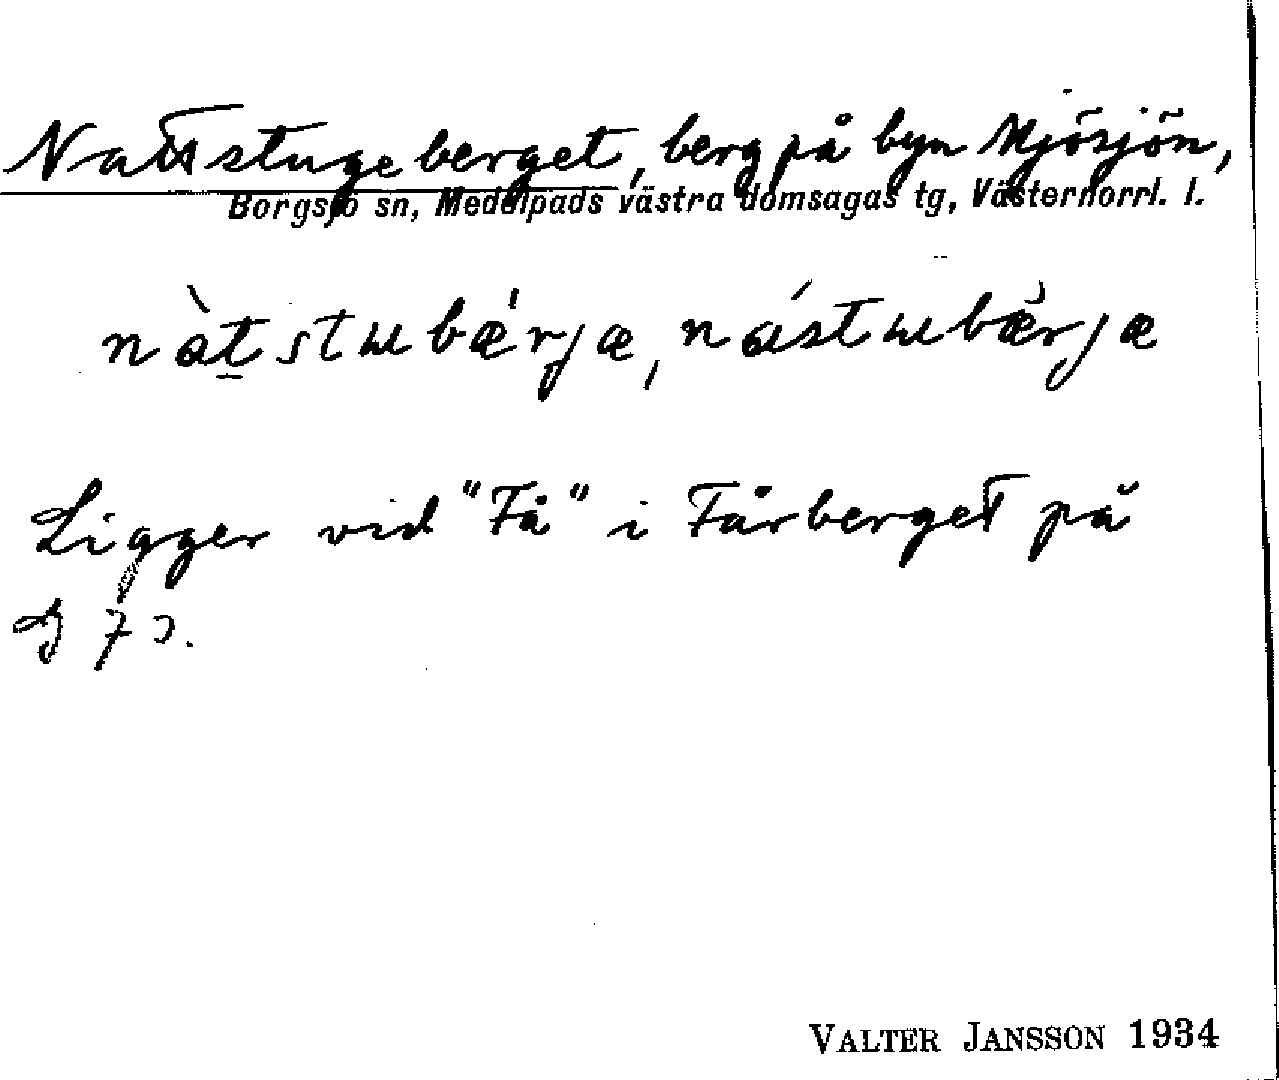 Nattstugeberget, berg på byn Mjösjön,
Borgsjö sn, Medelpads västra domsagas tg, Västernorrl. l.
nàtstɯbæ̀rjæ, nástɯbæ̀rjæ
Ligger vid "Få" i Fårberget på
VALTER JANSSON 1934